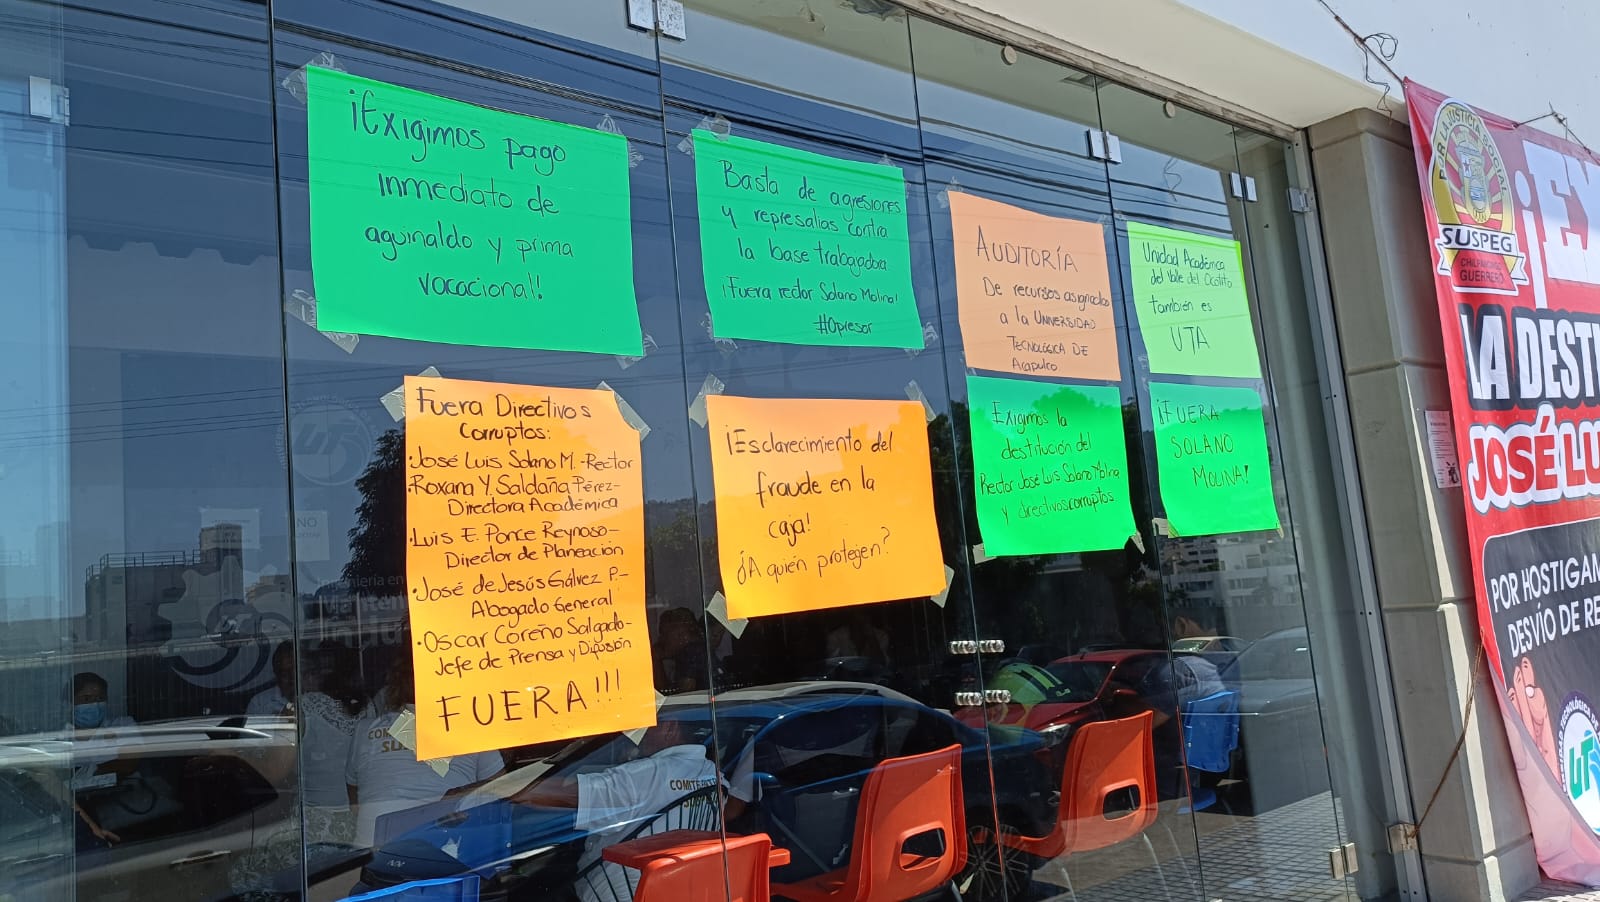 ¡Exigimos pago
inmediato de
aguinaldo y prima
vacacional!
Basta de agresiones
y represalias contra
la base trabajadora
¡Fuera rector Solano Molina!
#Opresor
AUDITORÍA
De recursos asignados
a la UNIVERSIDAD
TECNOLÓGICA DE
Acapulco
Unidad Académica
del Valle del Ocotito
también es
UTA
Fuera Directivos
Corruptos:
·José Luis Solano M.-Rector
·Roxana Y. Saldaña Pérez-
Directora Académica
·Luis E. Ponce Reynoso-
Director de Planeación
·José de Jesús Gálvez P.-
Abogado General
·Oscar Coreño Salgado-
Jefe de Prensa y Difusión
FUERA!!!
¡Esclarecimiento del
fraude en la
caja!
¿A quién protegen?
Exigimos la
destitución del
Rector José Luis Solano Molina
y directivos corruptos
¡FUERA
SOLANO
MOLINA!
POR LA JUSTICIA SOCIAL
SUSPEG
CHILPANCINGO
GUERRERO
¡EX
LA DESTI
JOSÉ LU
POR HOSTIGAM
DESVÍO DE RE
UT
NO
COMITÉ